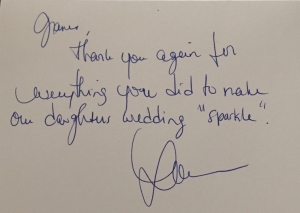 Thank you again for
everything you did to make
our daughters wedding "sparkle".